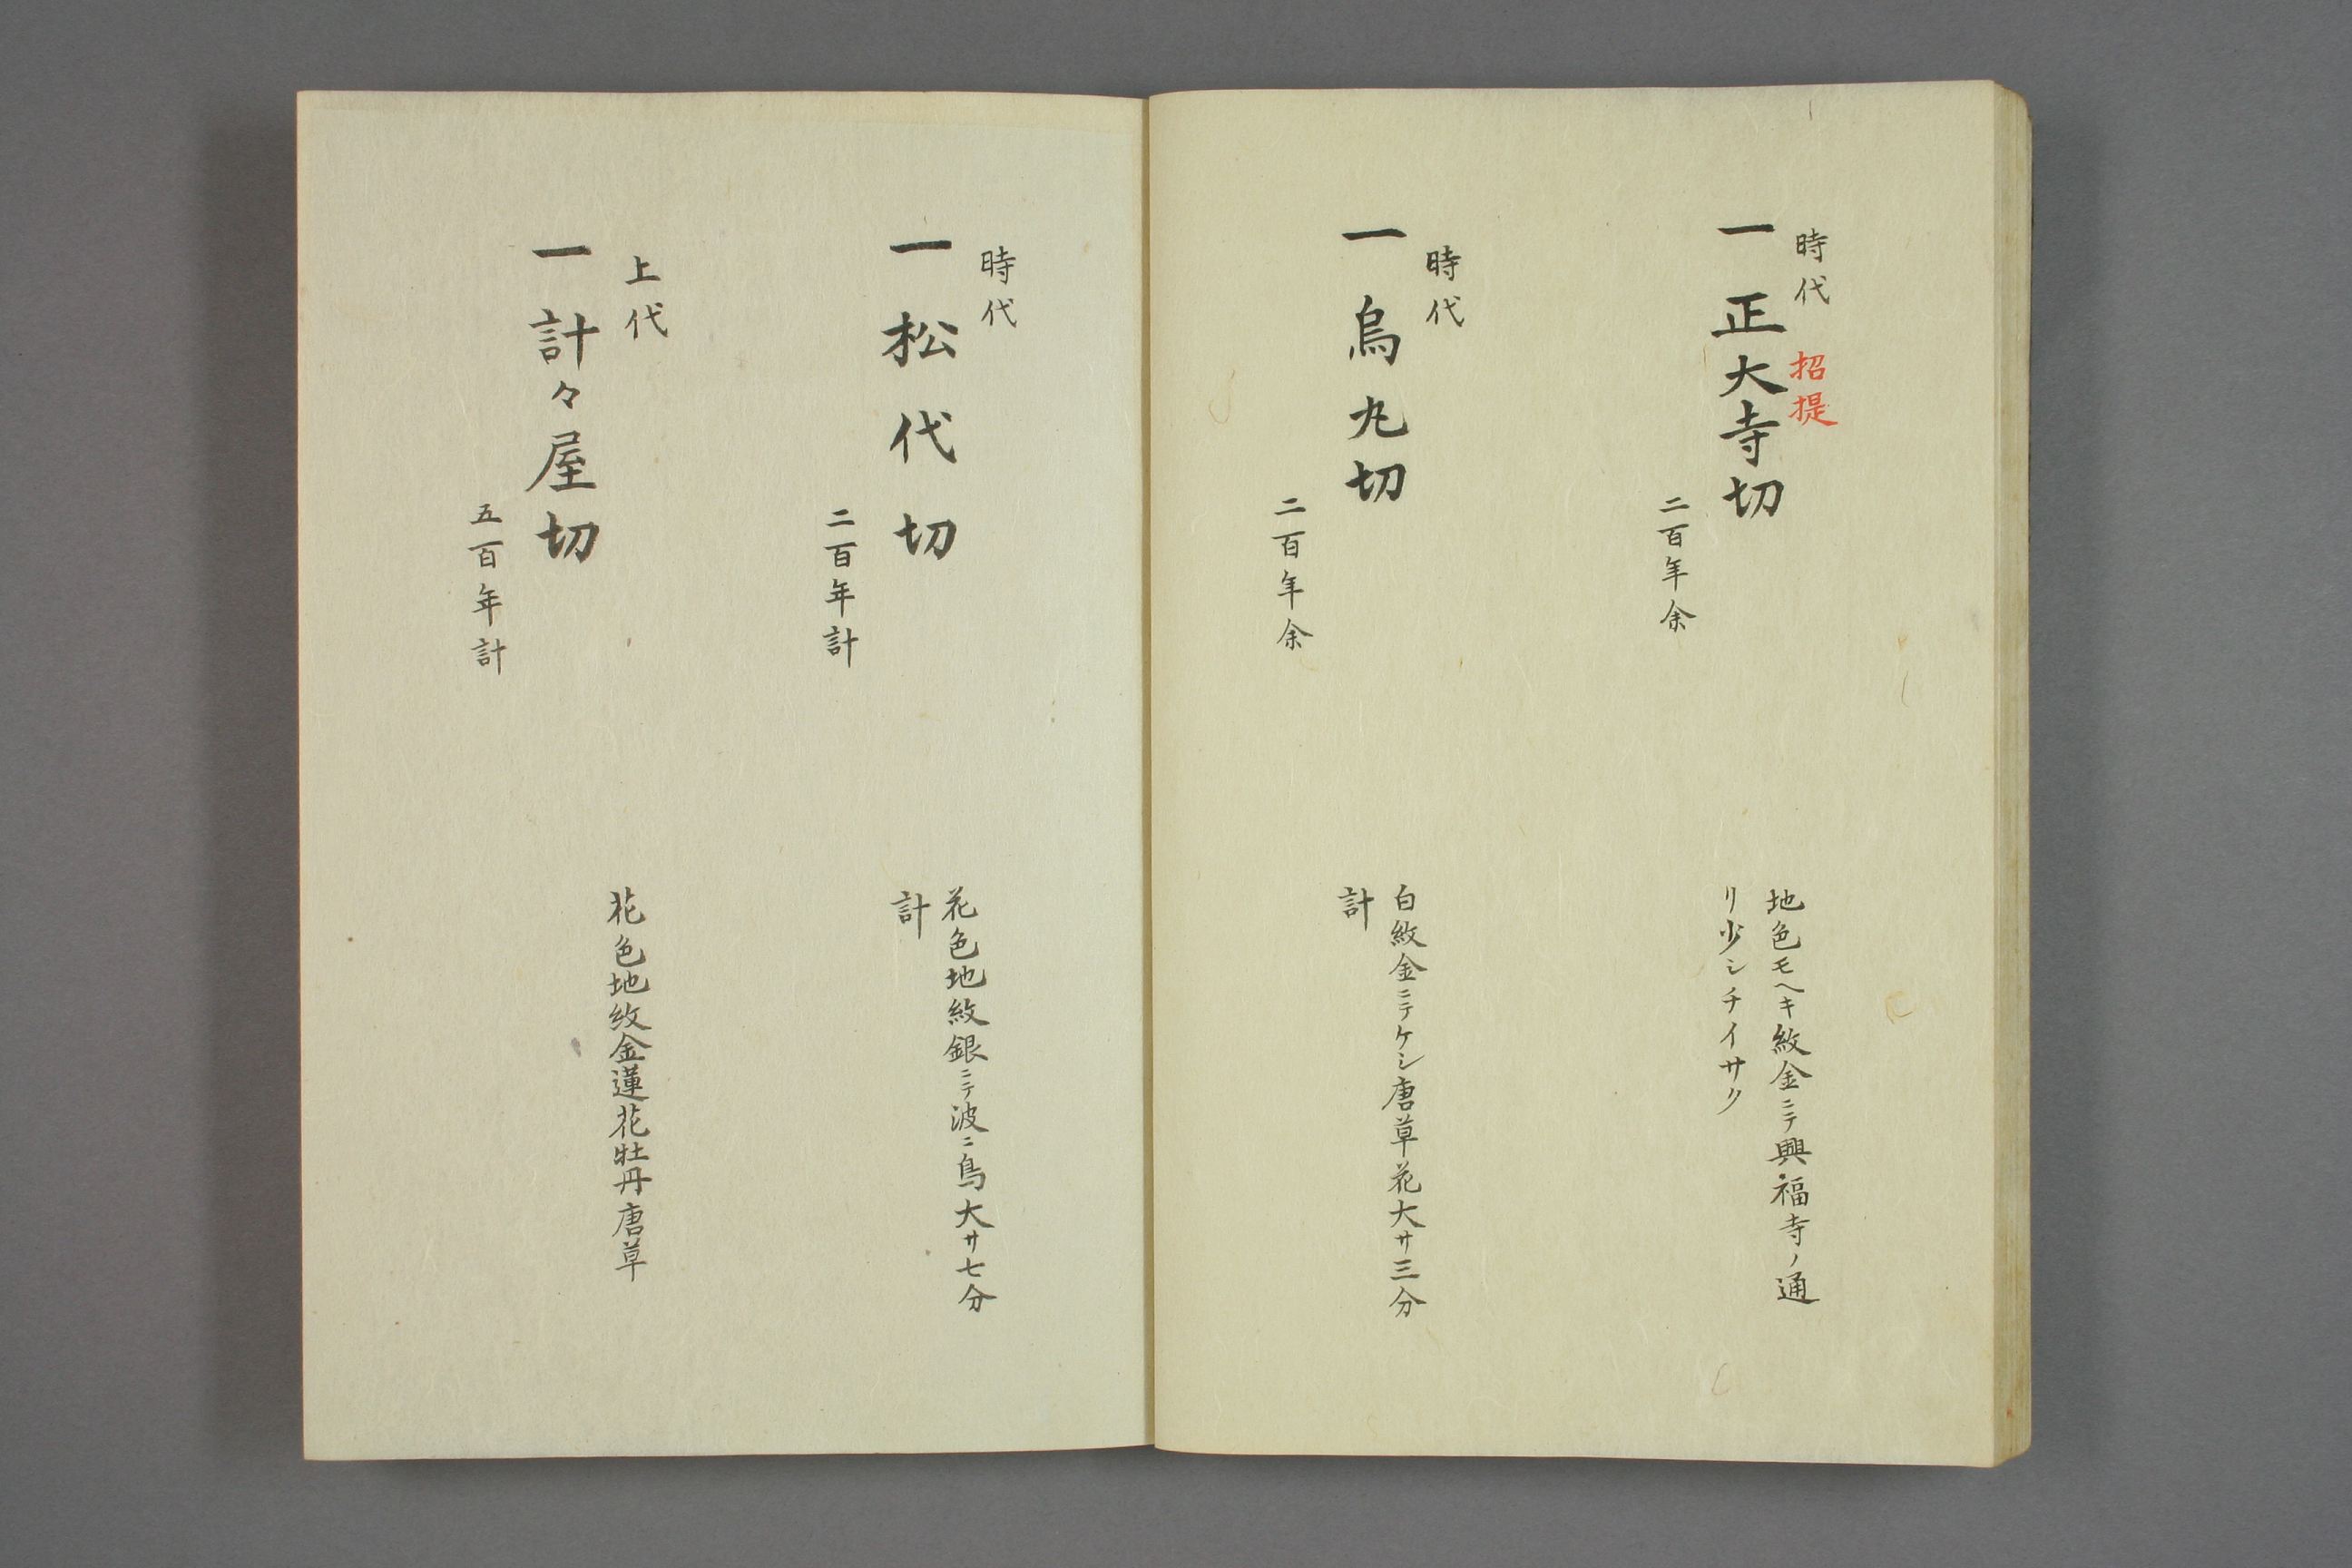 時代
招提
一 正大寺切
二百年余
地色モヘキ紋金ニテ興福寺ノ通
リ少シチイサク
時代
一 烏丸切
二百年余
白紋金ニテケシ唐草花大サ三分
計
時代
一 松代切
二百年計
花色地紋銀ニテ波ニ鳥大サ七分
計
上代
一 計々屋切
五百年計
花色地紋金蓮花牡丹唐草